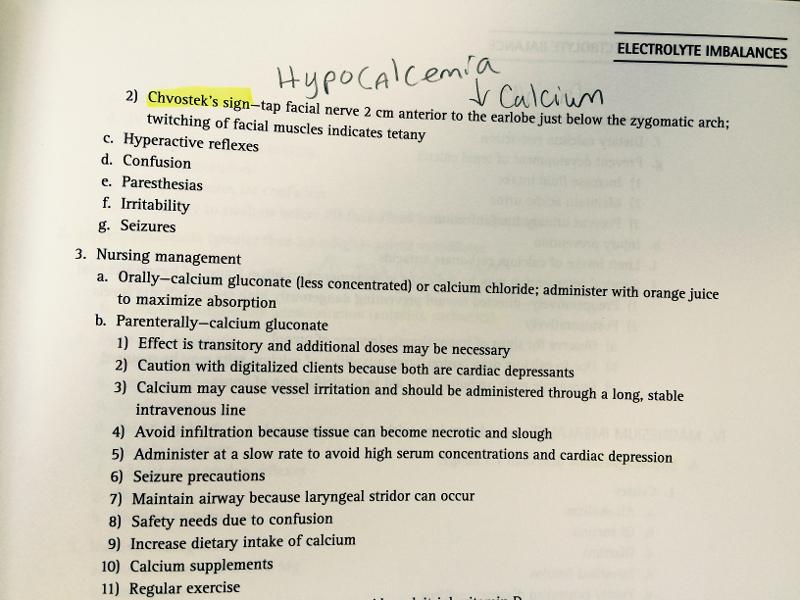 ELECTROLYTE IMBALANCES
Hypocalcemia
↓ Calcium
2) Chvostek's sign—tap facial nerve 2 cm anterior to the earlobe just below the zygomatic arch;
twitching of facial muscles indicates tetany
c. Hyperactive reflexes
d. Confusion
e. Paresthesias
f. Irritability
g. Seizures
3. Nursing management
a. Orally—calcium gluconate (less concentrated) or calcium chloride; administer with orange juice
to maximize absorption
b. Parenterally—calcium gluconate
1) Effect is transitory and additional doses may be necessary
2) Caution with digitalized clients because both are cardiac depressants
3) Calcium may cause vessel irritation and should be administered through a long, stable
intravenous line
4) Avoid infiltration because tissue can become necrotic and slough
5) Administer at a slow rate to avoid high serum concentrations and cardiac depression
6) Seizure precautions
7) Maintain airway because laryngeal stridor can occur
8) Safety needs due to confusion
9) Increase dietary intake of calcium
10) Calcium supplements
11) Regular exercise